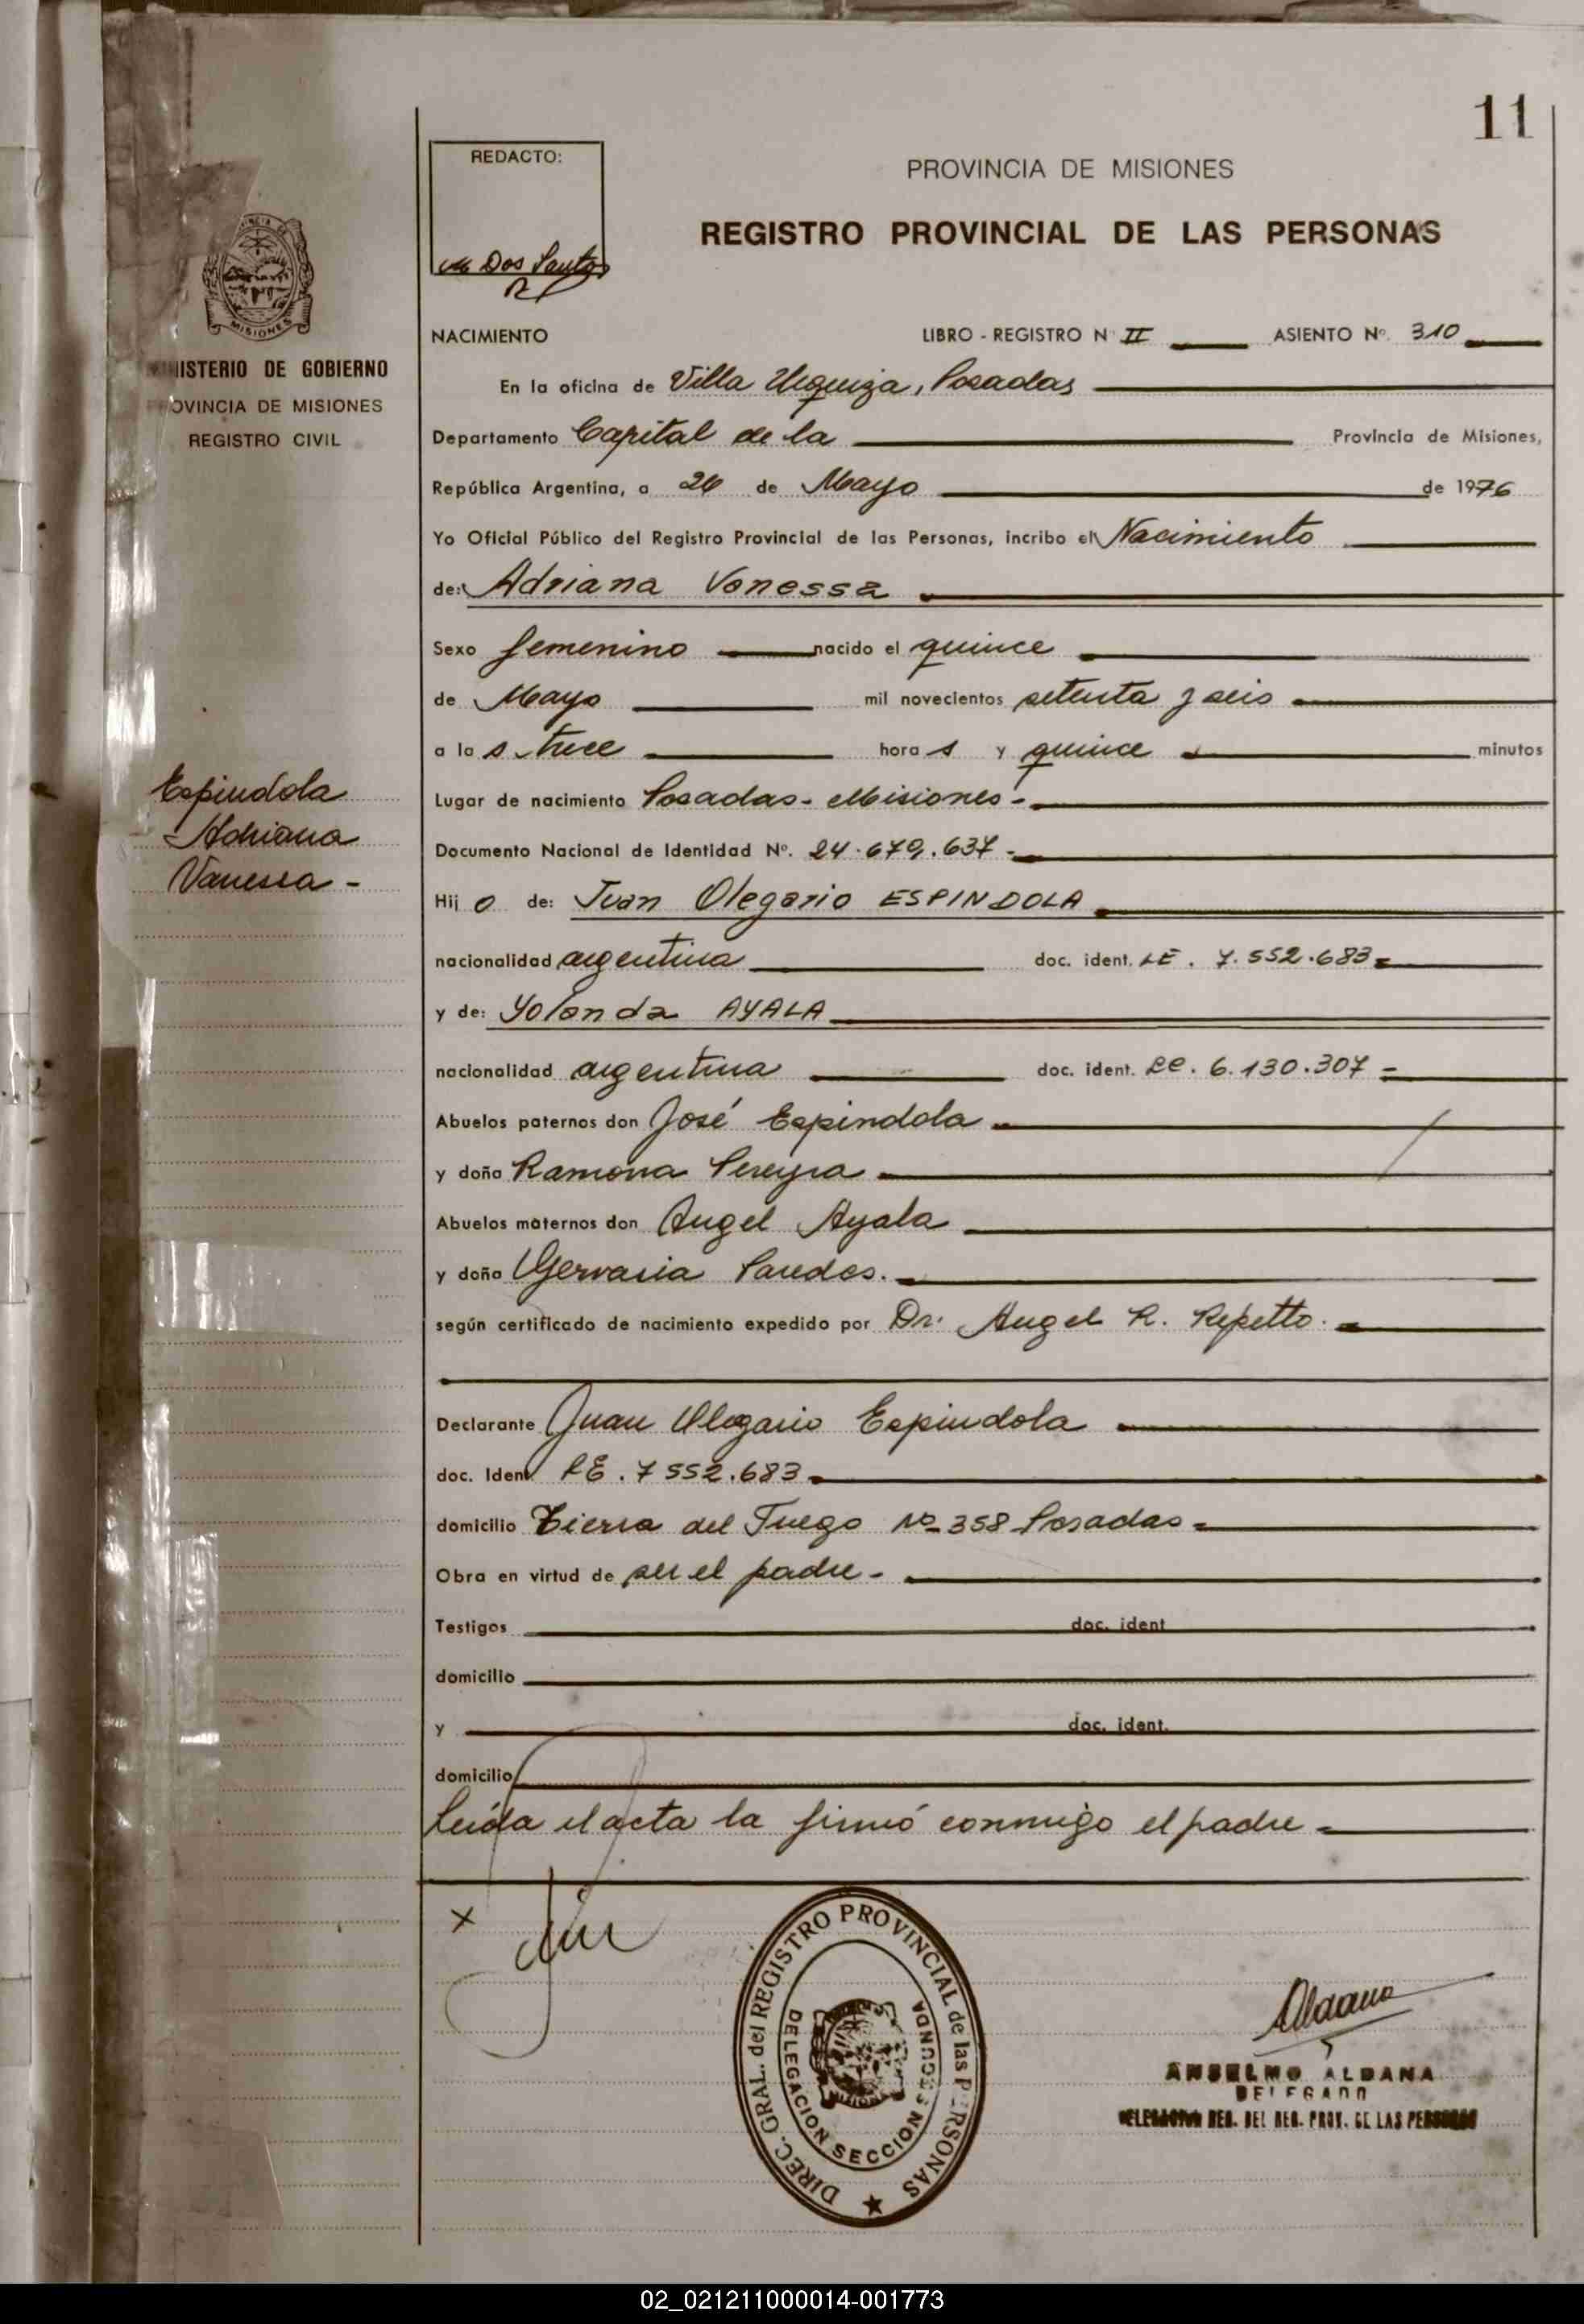 11
REDACTO:
M Dos Santos
PROVINCIA DE MISIONES
REGISTRO PROVINCIAL DE LAS PERSONAS
MISIONES
NISTERIO DE GOBIERNO
OVINCIA DE MISIONES
REGISTRO CIVIL
Espindola
Adriana
Vanessa -
NACIMIENTO LIBRO - REGISTRO N II ASIENTO Nº. 310
En la oficina de Villa Urquiza, Posadas
Departamento Capital de la Provincia de Misiones,
República Argentina, a 26 de Mayo de 1976
Yo Oficial Público del Registro Provincial de las Personas, incribo el Nacimiento
de: Adriana Vanessa
Sexo femenino nacido el quince
de Mayo mil novecientos setenta y seis
a la s trece hora s y quince minutos
Lugar de nacimiento Posadas - Misiones -
Documento Nacional de Identidad Nº. 24.679.637 -
Hij o de: Juan Olegario ESPINDOLA
nacionalidad argentina doc. ident. LE. 7.552.683
y de: Yolanda AYALA
nacionalidad argentina doc. ident. LC. 6.130.307 -
Abuelos paternos don José Espindola
y doña Ramona Pereyra
Abuelos maternos don Angel Ayala
y doña Gervasia Paredes.
según certificado de nacimiento expedido por Dr. Angel R. Repetto.
Declarante Juan Olegario Espindola
doc. Ident LE. 7 552.683
domicilio Tierra del Fuego Nº 358 Posadas
Obra en virtud de ser el padre -
Testigos doc. ident
domicilio
y doc. ident.
domicilio
Leída el acta la firmó conmigo el padre -
x
DIREC. GRAL. del REGISTRO PROVINCIAL de las PERSONAS
DELEGACION SECCION SEGUNDA
Aldana
ANSELMO ALDANA
DELEGADO
DELEGACION REG. DEL REG. PROV. DE LAS PERSONAS
02_021211000014-001773